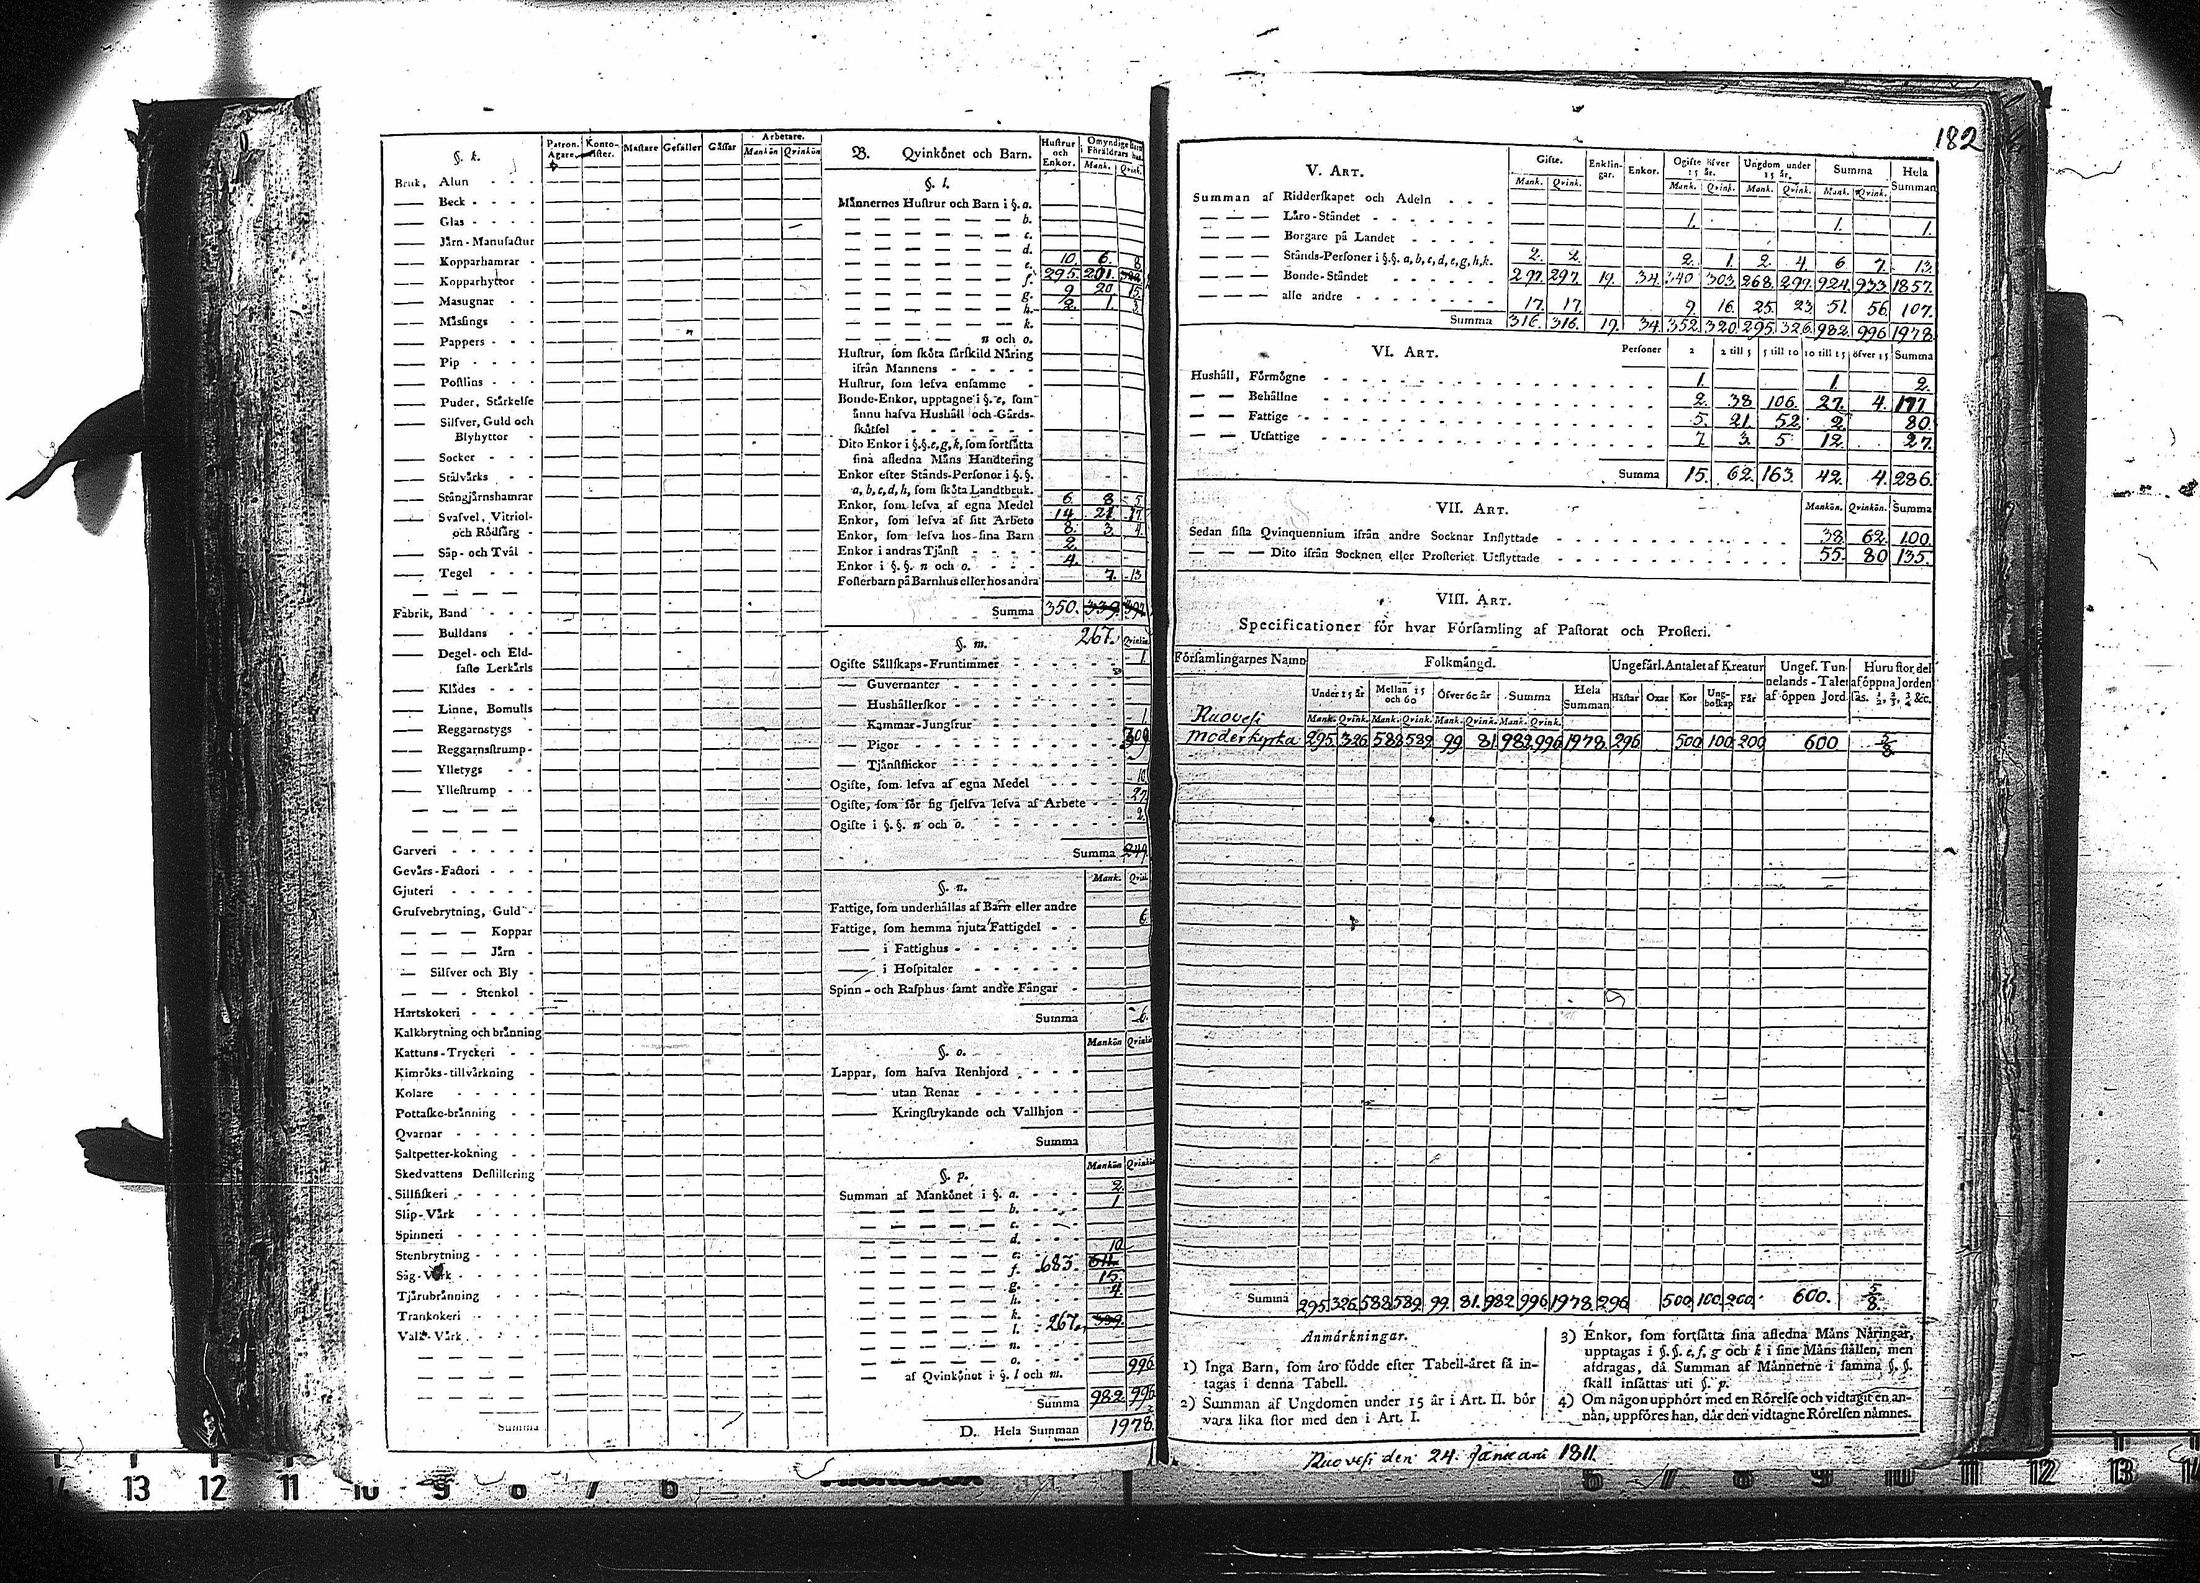 §. k.
Patron. Ägare.
Konto-
Mästare
Gesäller
Gåssar
Arbetare.
Mankön Qvinkön
Bruk, Alun
Beck
Glas
Järn-Manufactur
Kopparhamrar
Kopparhyttor
Masugnar
Mässings
Pappers
Pip
Postlins
Puder, Stärkelse
Silfver, Guld och
Blyhyttor
Socker
Stålvärks
Stångjärnshamrar
Svafvel, Vitriol-
och Rödfärg
Såp- och Tvål
Tegel
Fabrik, Band
Bulldans
Degel- och Eld-
faste Lerkärls
Klädes
Linne, Bomulls
Reggarnstygs
Reggarnsstrump-
Ylletygs
Yllestrump
Garveri
Gevärs-Factori
Gjuteri
Grufvebrytning, Guld
Koppar
Järn
Silfver och Bly
Stenkol
Hartskokeri
Kalkbrytning och bränning
Kattuns-Tryckeri
Kimröks-tillvärkning
Kolare
Pottaske-bränning
Qvarnar
Saltpetter-kokning
Skedvattens Destillering
Sillfiskeri
Slip-Värk
Spinneri
Stenbrytning
Såg-Värk
Tjärubränning
Trankokeri
Valk-Värk
Summa
B. Qvinkönet och Barn.
Hustrur och Enkor.
Omyndige Barn i Föräldrars hus.
Mank. Qvink.
§. l.
Männernes Hustrur och Barn i §. a.
b.
c.
d.
e. 10. 6. 8.
f. 295. 201.
g. 9 20 15.
h. 2. 1. 3.
k.
n och o.
Hustrur, som sköta särskild Näring
ifrån Mannens
Hustrur, som lefva ensamme
Bonde-Enkor, upptagne i §. e, som
ännu hafva Hushåll och Gårds-
skötsel
Dito Enkor i §.§. e, g, k, som fortsätta
sina afledna Mäns Handtering
Enkor efter Stånds-Personer i §.§.
a, b, c, d, h, som sköta Landtbruk.
Enkor, som lefva af egna Medel 6. 8. 5
Enkor, som lefva af sitt Arbete 14. 21. 17
Enkor, som lefva hos sina Barn 8. 3. 4.
Enkor i andras Tjänst 2.
Enkor i §.§. n och o. 4.
Fosterbarn på Barnhus eller hos andra 7. 13
Summa 350. 339. 397.
267.
§. m. Qvinkön
Ogifte Sällskaps-Fruntimmer 1.
Guvernanter
Hushållerskor
Kammar-Jungfrur 1.
Pigor
Tjänstflickor
Ogifte, som lefva af egna Medel 10.
Ogifte, som för sig sjelfva lefva af Arbete 27.
Ogifte i §.§. n och o. 2.
Summa 249.
§. n. Mank. Qvink.
Fattige, som underhållas af Barn eller andre 6.
Fattige, som hemma njuta Fattigdel
i Fattighus
i Hospitaler
Spinn- och Rasphus samt andre Fångar
Summa 6.
§. o. Mankön Qvinkön
Lappar, som hafva Renhjord
utan Renar
Kringstrykande och Vallhjon
Summa
§. p. Mankön Qvinkön
Summan af Mankönet i §. a. 2.
b. 1
c.
d.
e. 10
f. 683. 611.
g. 15.
h. 4.
k.
l. 267. 339.
n.
o.
af Qvinkönet i §. l och m. 996.
Summa 982. 996.
D. Hela Summan 1978.
182
V. Art.
Gifte. Enklingar. Enkor. Ogifte öfver 15 år. Ungdom under 15 år. Summa Hela Summan
Mank. Qvink. Mank. Qvink. Mank. Qvink. Mank. Qvink.
Summan af Ridderskapet och Adeln
Läro-Ståndet 1. 1. 1.
Borgare på Landet
Stånds-Personer i §.§. a, b, c, d, e, g, h, k. 2. 2. 2. 1. 2. 4. 6. 7. 13.
Bonde-Ståndet 297. 297. 19. 34. 340 303. 268. 299. 924. 933. 1857.
alle andre 17. 17. 9. 16. 25. 23. 51. 56. 107.
Summa 316. 316. 19. 34. 352. 320. 295. 326. 982. 996 1978.
VI. Art.
Personer 2 2 till 5 5 till 10 10 till 15 öfver 15 Summa
Hushåll, Förmögne 1. 1. 2.
Behållne 2. 38. 106. 27. 4. 177
Fattige 5. 21. 52. 2. 80.
Utfattige 7. 3. 5. 12. 27.
Summa 15. 62. 163. 42. 4. 286.
VII. Art.
Mankön. Qvinkön. Summa
Sedan sista Qvinquennium ifrån andre Socknar Inflyttade 38. 62. 100.
Dito ifrån Socknen eller Prosteriet Utflyttade 55. 80 135.
VIII. Art.
Specificationer för hvar Församling af Pastorat och Prosteri.
Församlingarnes Namn
Folkmängd.
Ungefärl. Antalet af Kreatur
Ungef. Tunnelands-Talet af öppen Jord.
Huru stor del af öppna Jorden säs. ½, ⅓, ¾ &c.
Under 15 år Mellan 15 och 60 Öfver 60 år Summa Hela Summan Hästar Oxar Kor Ungboskap Får
Mank. Qvink. Mank. Qvink. Mank. Qvink. Mank. Qvink.
Ruovesi
Moderkyrka 295. 326 588 589. 99. 81. 982. 996 1978. 296 500 100 200 600 5/8.
Summa 295. 326. 588. 589. 99. 81. 982. 996 1978. 296 500. 100. 200. 600. 5/8.
Anmärkningar.
1) Inga Barn, som äro födde efter Tabell-året få in-
tagas i denna Tabell.
2) Summan af Ungdomen under 15 år i Art. II. bör
vara lika stor med den i Art. I.
3) Enkor, som fortsätta sina afledna Mäns Näringar,
upptagas i §.§. e, f, g och k i sine Mäns ställen, men
afdragas, då Summan af Männerne i samma §.§.
skall insättas uti §. p.
4) Om någon upphört med en Rörelse och vidtagit en an-
nan, uppföres han, där den vidtagne Rörelsen nämnes.
Ruovesi den 24. Januari 1811.
14 13 12 11 10 9 8 7 6 5 7 8 9 10 11 12 13 14